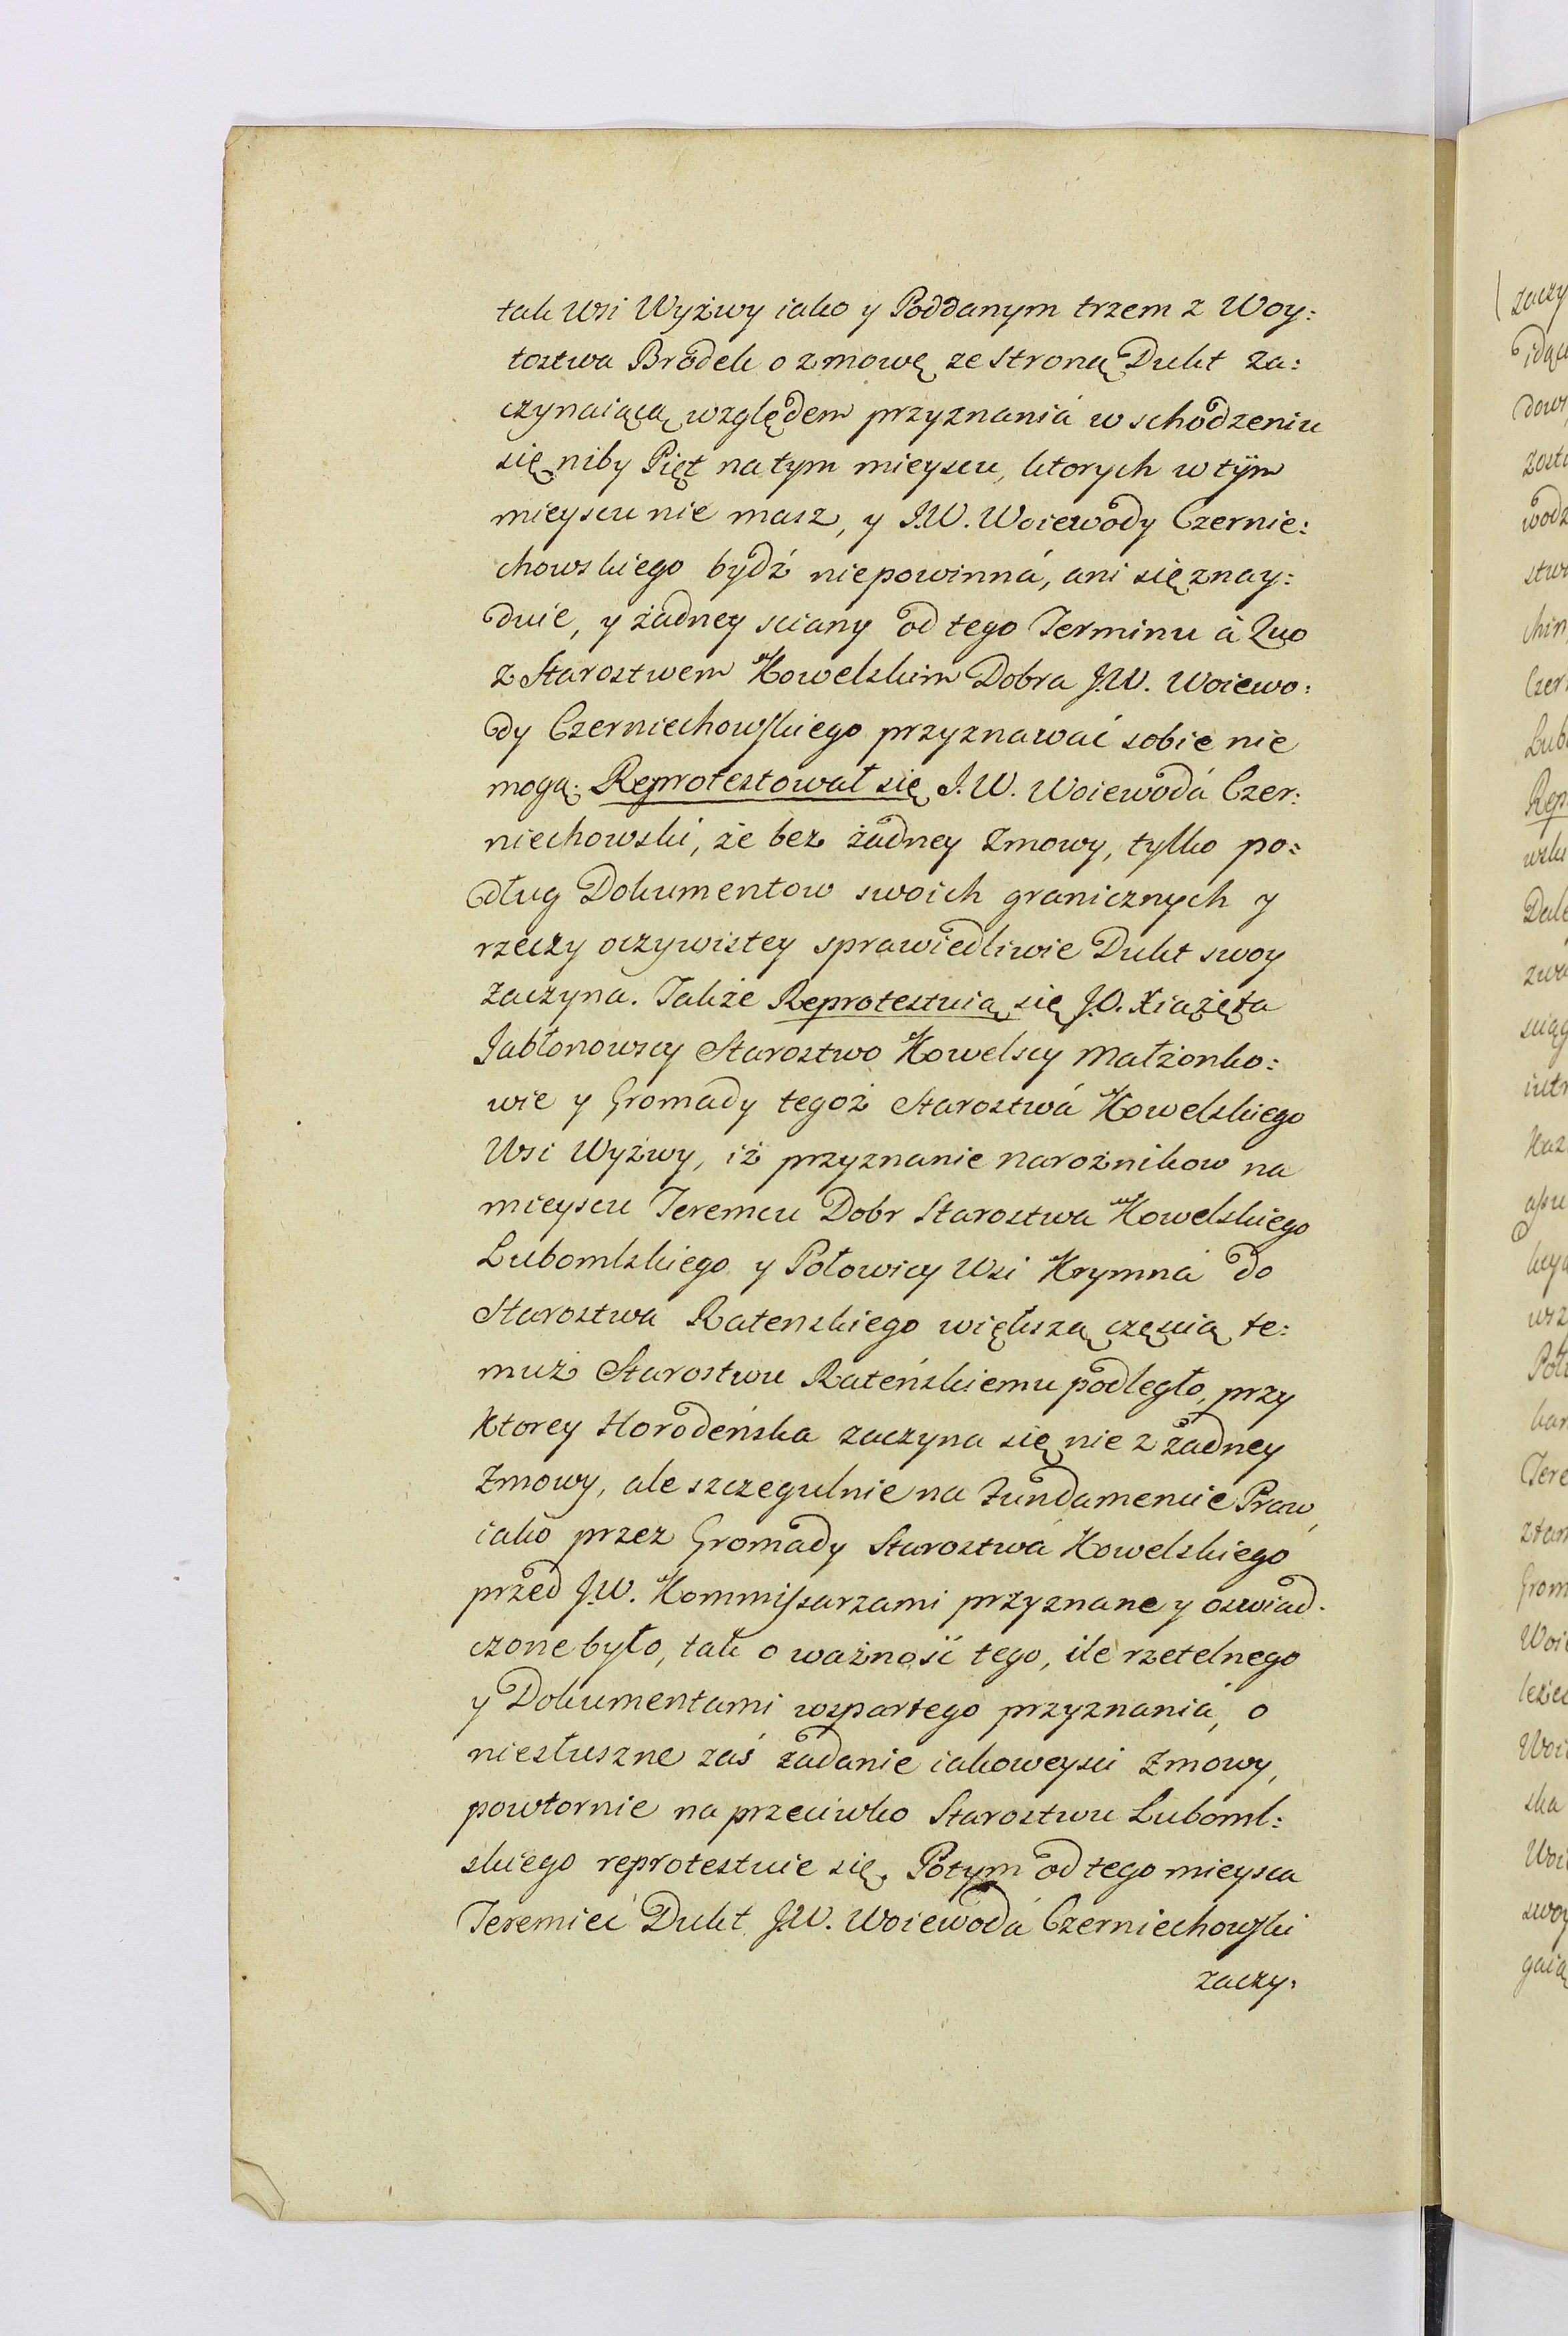 tak Wsi Wyżwy iako y Poddanym trzem z Woy:
tostwa Brodek o zmowę ze stroną Dukt za:
czynaiącą względem przyznania w schodzeniu
się niby Pięt na tym mieyscu, ktorych w tym
mieyscu nie masz, y J.W. Woiewody Czernie:
chowskiego bydź niepowinná, ani się znay:
duie, y żadney sciany od tego Terminu à Quo
z Starostwem Kowelskim Dobra J.W. Woiewo:
dy Czerniechowskiego przyznawać sobie nie
mogą. Reprotestował się J.W. Woiewodá Czer:
niechowski, że bez żadney Zmowy, tylko po:
dług Dokumentow swoich granicznych y
rzeczy oczywistey sprawiedliwie Dukt swoy
zaczyna. Także Reprotestuią się J.O. Xiążęta
Jabłonowscy Starostwo Kowelscy Małżonko:
wie y Gromady tegoż Starostwá Kowelskiego
Wsi Wyżwy, iż przyznanie narożnikow na
mieyscu Teremcu Dobr Starostwa Kowelskiego
Lubomlskiego y Połowicy Wsi Krymná do
Starostwa Ratenskiego większą częscią te:
muż Starostwu Rateńskiemu podległo, przy
Ktorey Horodeńska zaczyna się nie z żadney
Zmowy, ale szczegulnie na Fundamencie Praw,
iako przez Gromady Starostwá Kowelskiego
przed J.W. Kommissarzami przyznane y oswiad.
czone było, tak o ważność tego, ile rzetelnego
y Dokumentami wspartego przyznania, o
niesłuszne zaś żadanie iakoweysci Zmowy,
powtornie na przeciwko Starostwu Luboml:
skiego reprotestuie się. Potym od tego mieysca
Teremieć Dukt J.W. Woiewodá Czerniechowski
zaczy:
zaczy
idąc
Czer
Lub
Rep
Grom